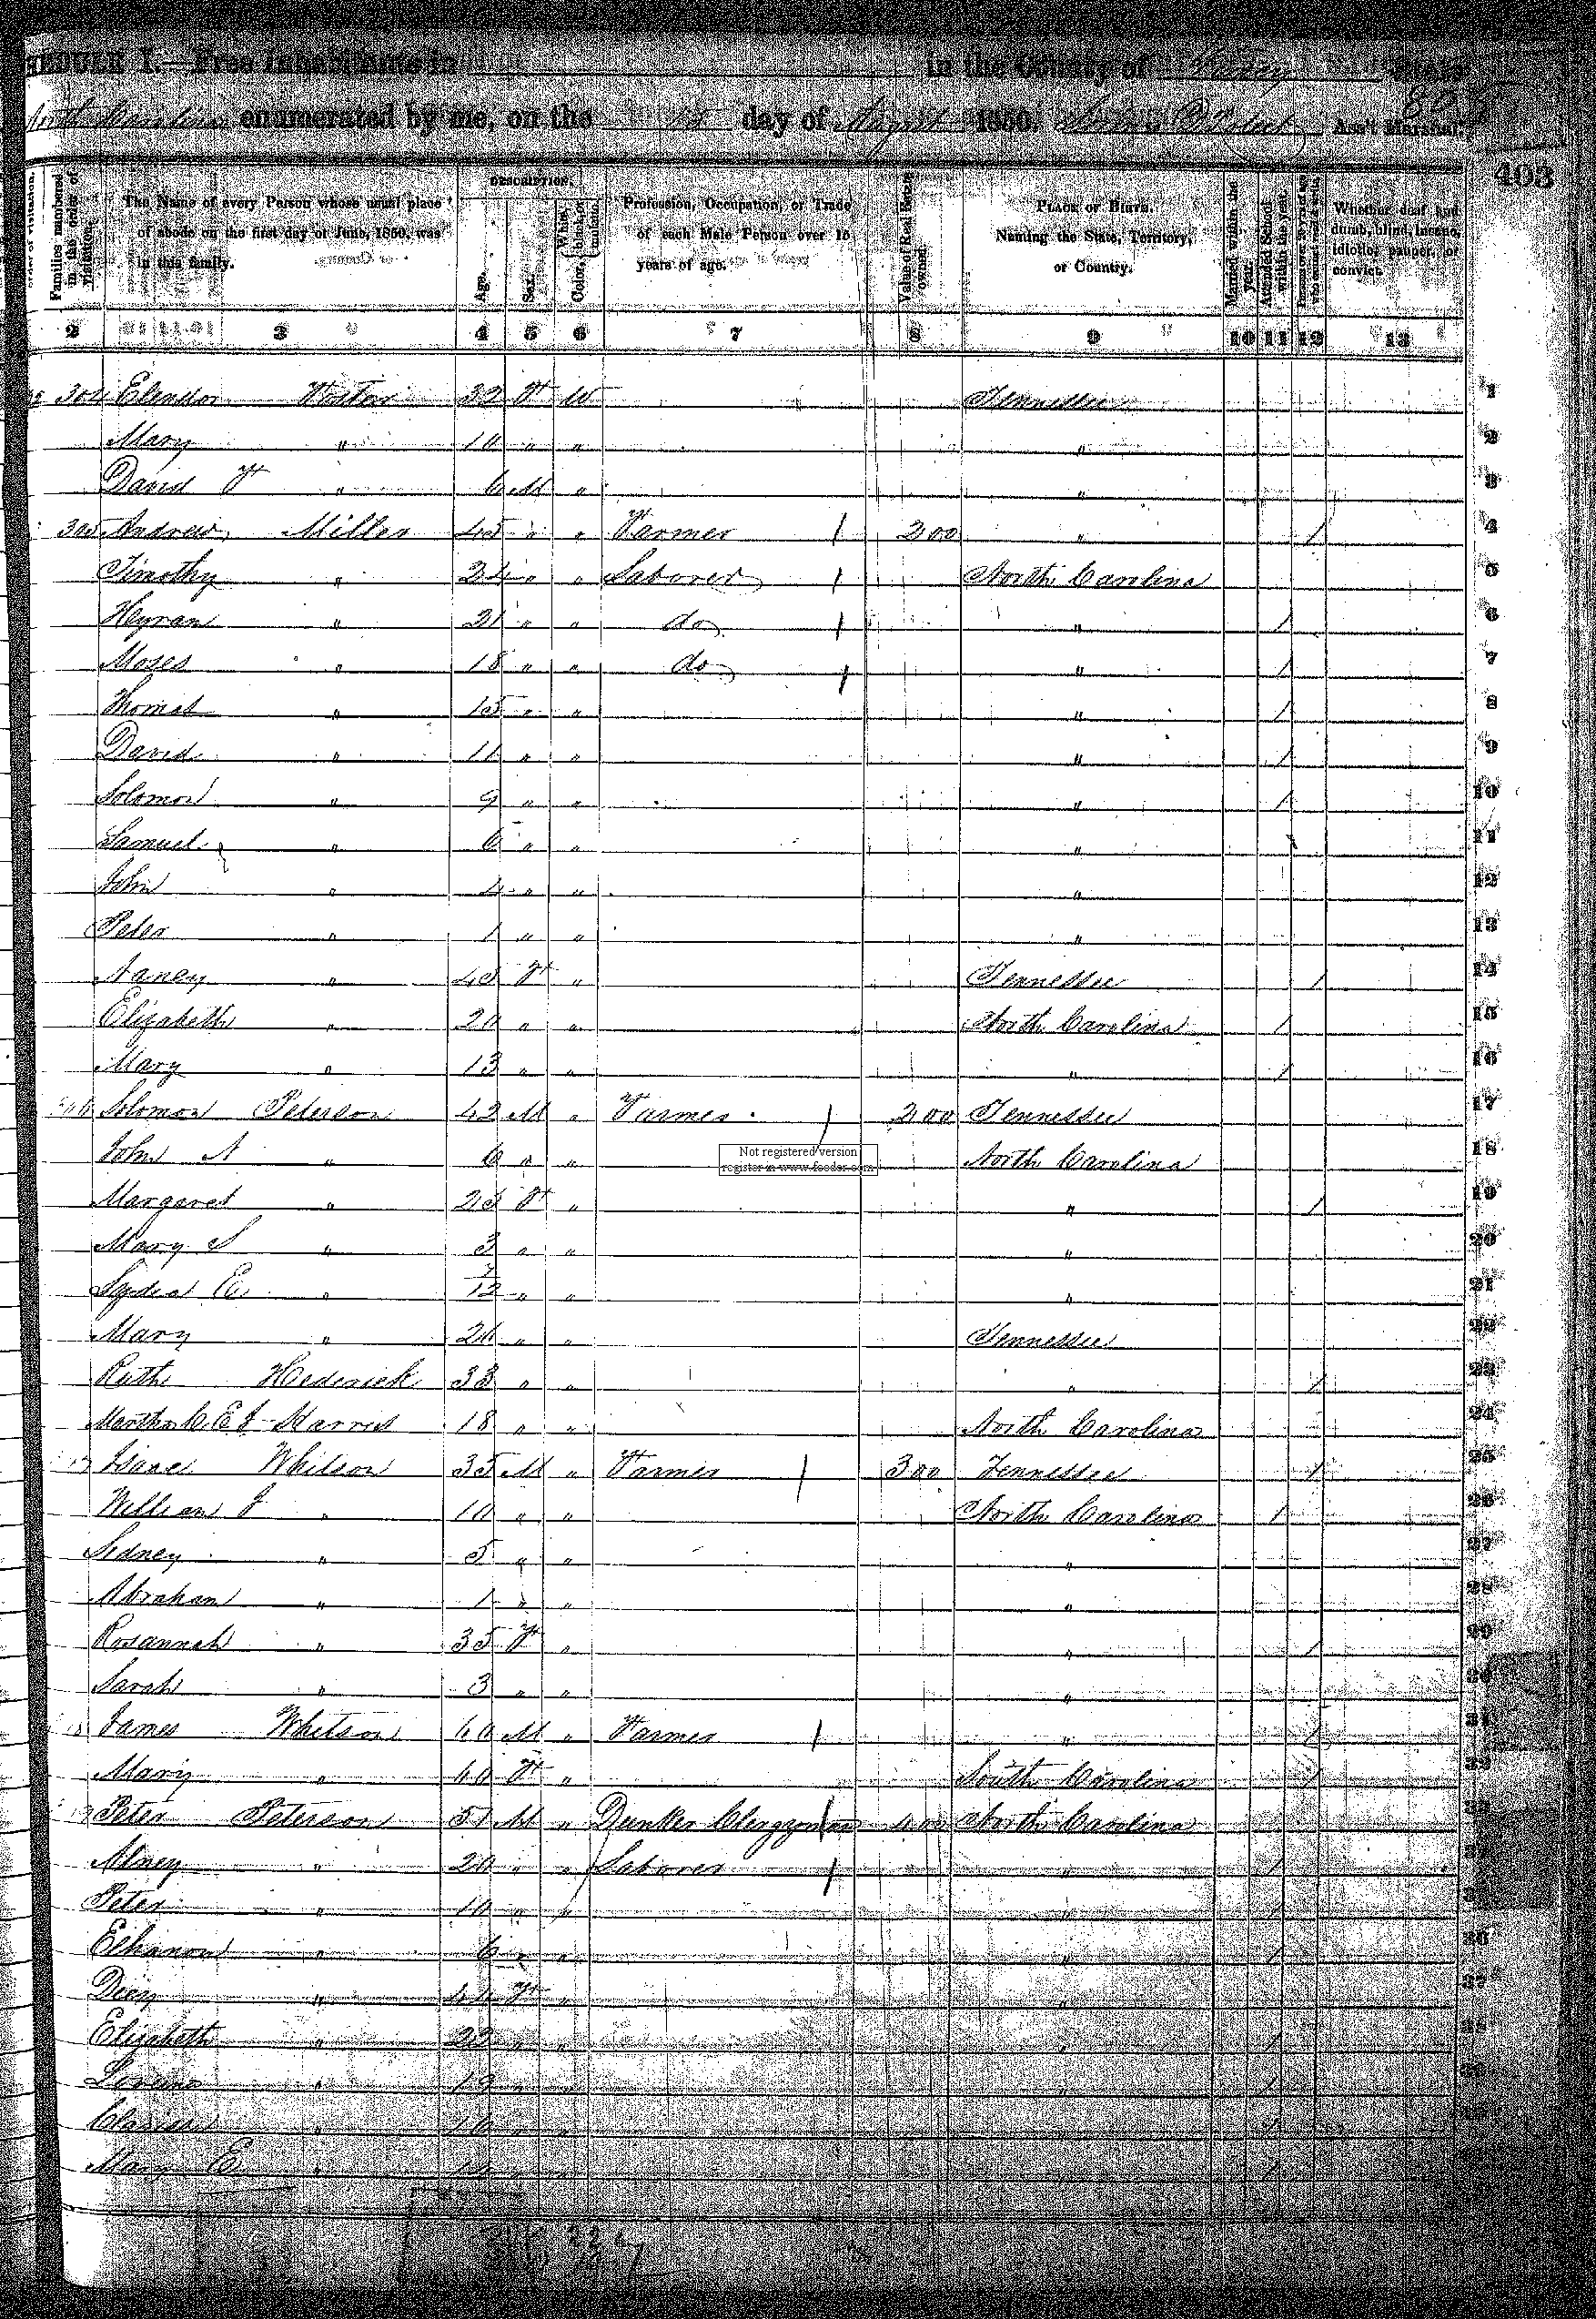 SCHEDULE I.—Free Inhabitants in in the County of Yancey State
North Carolina enumerated by me, on the 15 day of August 1850. Ass't Marshal.
403
Families numbered in the order of visitation.
The Name of every Person whose usual place of abode on the first day of June, 1850, was in this family.
DESCRIPTION.
Age.
Sex.
Color, { White, black, or mulatto.
Profession, Occupation, or Trade of each Male Person over 15 years of age.
Value of Real Estate owned.
PLACE OF BIRTH. Naming the State, Territory, or Country.
Married within the year.
Attended School within the year.
Whether deaf and dumb, blind, insane, idiotic, pauper, or convict.
2 3 4 5 6 7 8 9 10 11 12 13
F W Tennessee 1
Mary " 10 " " " 2
David F " 6 M " " 3
305 Andrew Miller 45 " " Farmer 200 " / 4
Timothy " 24 " " Laborer North Carolina 5
Hyram " 21 " " do " / 6
Moses " 18 " " do " / 7
Thomas " 15 " " " / 8
David " 11 " " " / 9
Solomon " 9 " " " / 10
Samuel " 6 " " " 11
John " 4 " " " 12
Peter " 1 " " " 13
Nancy " 45 F " Tennessee / 14
Elizabeth " 20 " " North Carolina / 15
Mary " 13 " " " / 16
Solomon Peterson 42 M " Farmer 200 Tennessee 17
John N " 6 " " North Carolina 18
Not registered version
register in www.fooder.com
Margaret " 25 F " " / 19
Mary S " 3 " " " 20
Lydia E " 7/12 " " " 21
Mary " " " Tennessee 22
Ruth Hederick 33 " " " / 23
Martha C E J Harris 18 " " North Carolina 24
Isaac Whitson 35 M " Farmer 300 Tennessee / 25
William J " 10 " " North Carolina / 26
Sidney " 5 " " " 27
Abraham " 1 " " " 28
Rosannah " 35 F " " / 29
Sarah " 3 " " " 30
James Whitson 60 M " Farmer " / 31
Mary " 60 F " South Carolina / 32
Peter Peterson 51 M " Dunker Clergyman North Carolina 33
" 20 " " Laborer " /
Peter " 10 " " " /
Elhanon " 6 " " " / 36
" 44 F " " 37
Elizabeth " 22 " " " /
" 19 " " " /
" 16 " " " /
Mary E " " " " /